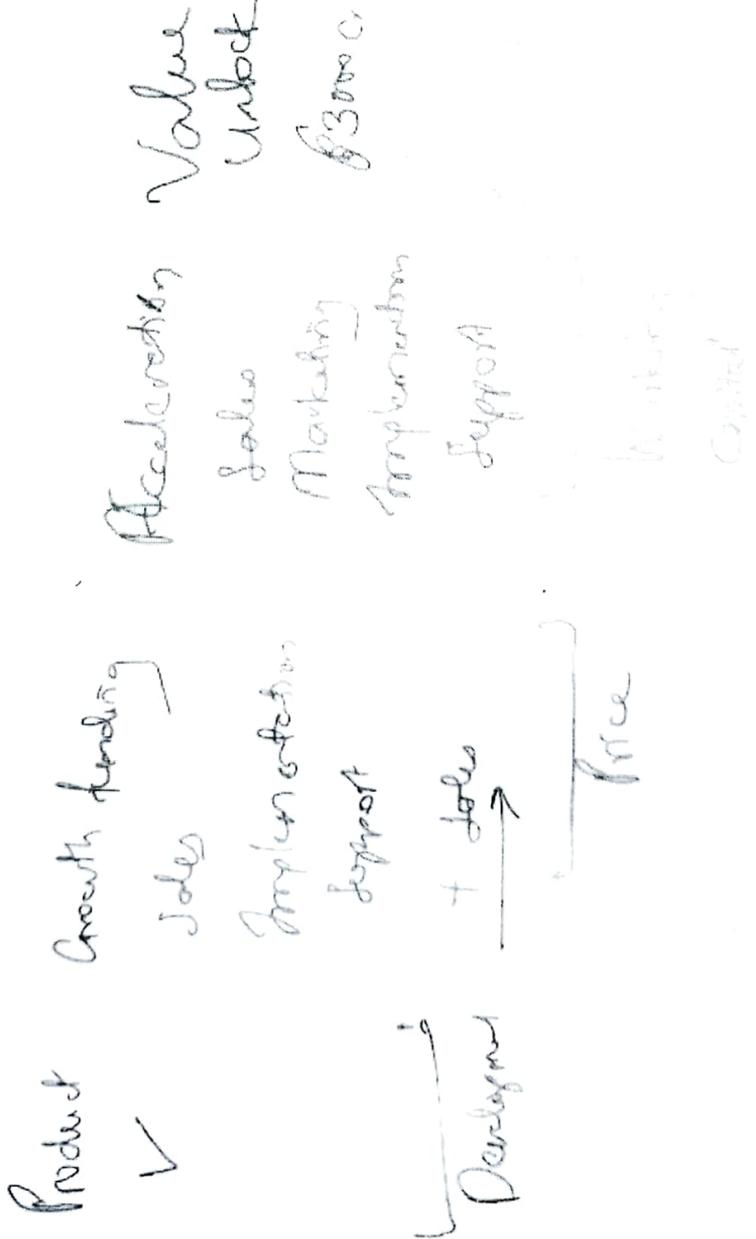 Product
✓
Development
Growth funding
Sales
Implementation
Support
+ Sales
Price
Acceleration
Sales
Marketing
Implementation
Support
Capital
Value
Unlock